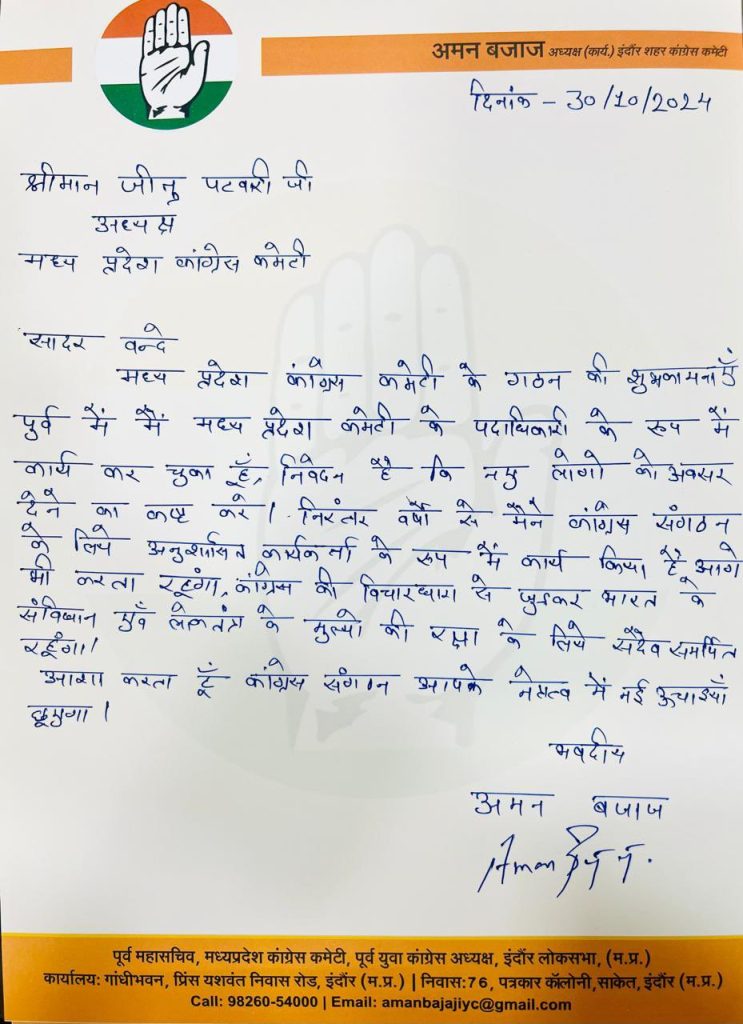 अमन बजाज अध्यक्ष (कार्य.) इंदौर शहर कांग्रेस कमेटी
दिनांक - 30/10/2024
श्रीमान जीतु पटवारी जी
अध्यक्ष
मध्य प्रदेश कांग्रेस कमेटी
सादर वन्दे
मध्य प्रदेश कांग्रेस कमेटी के गठन की शुभकामनाएँ
पुर्व में मैं मध्य प्रदेश कमेटी के पदाधिकारी के रूप में
कार्य कर चुका हूँ, निवेदन है कि नए लोगो को अवसर
देने का कष्ट करे। निरंतर वर्षो से मैने कांग्रेस संगठन
के लिये अनुशासित कार्यकर्ता के रूप में कार्य किया है आगे
भी करता रहूंगा, कांग्रेस की विचारधारा से जुड़कर भारत के
संविधान एवँ लोकतंत्र के मुल्यो की रक्षा के लिये सदैव समर्पित
रहूँगा।
आशा करता हूँ कांग्रेस संगठन आपके नेतृत्व में नई ऊचाइयाँ
छूएगा।
भवदीय
अमन बजाज
Aman
पूर्व महासचिव, मध्यप्रदेश कांग्रेस कमेटी, पूर्व युवा कांग्रेस अध्यक्ष, इंदौर लोकसभा, (म.प्र.)
कार्यालय: गांधीभवन, प्रिंस यशवंत निवास रोड, इंदौर (म.प्र.) | निवास:76, पत्रकार कॉलोनी,साकेत, इंदौर (म.प्र.)
Call: 98260-54000 | Email: amanbajajiyc@gmail.com